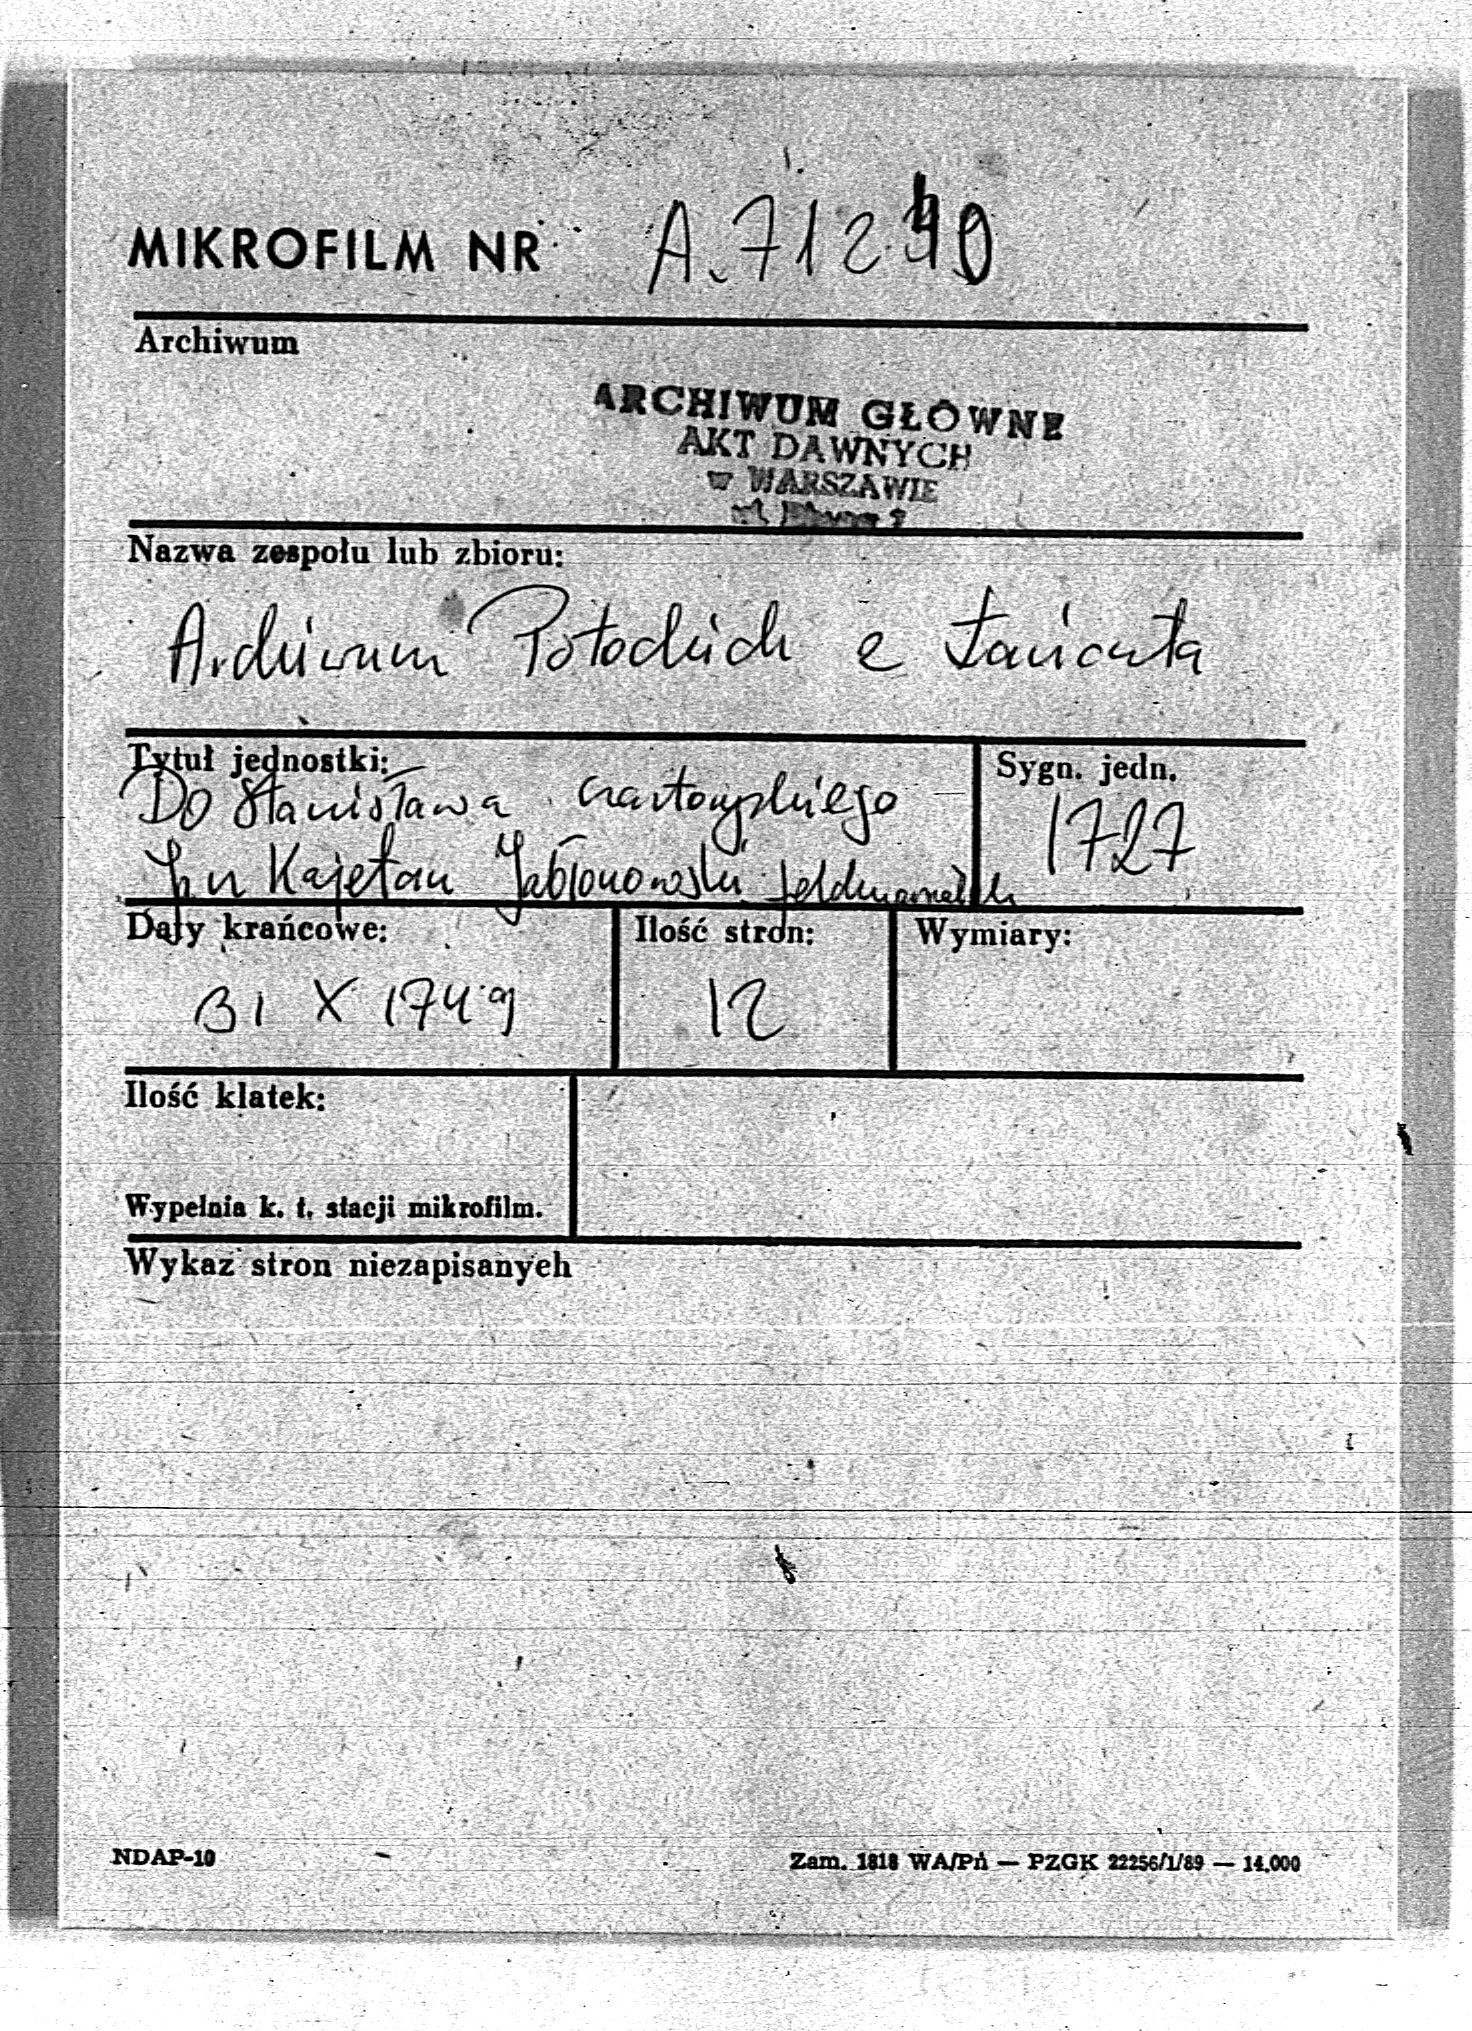 MIKROFILM NR A.71240
Archiwum
ARCHIWUM GŁÓWNE
AKT DAWNYCH
w WARSZAWIE
Nazwa zespołu lub zbioru:
Archiwum Potockich z Łańcuta
Tytuł jednostki:
Sygn. jedn.
Do Stanisława Czartoryskiego
1727
Jan Kajetan Jabłonowski
Daty krańcowe:
Ilość stron:
Wymiary:
31 X 1749
12
Ilość klatek:
Wypełnia k. t. stacji mikrofilm.
Wykaz stron niezapisanych
NDAP-10
Zam. 1818 WA/Pń — PZGK 22256/1/89 — 14.000